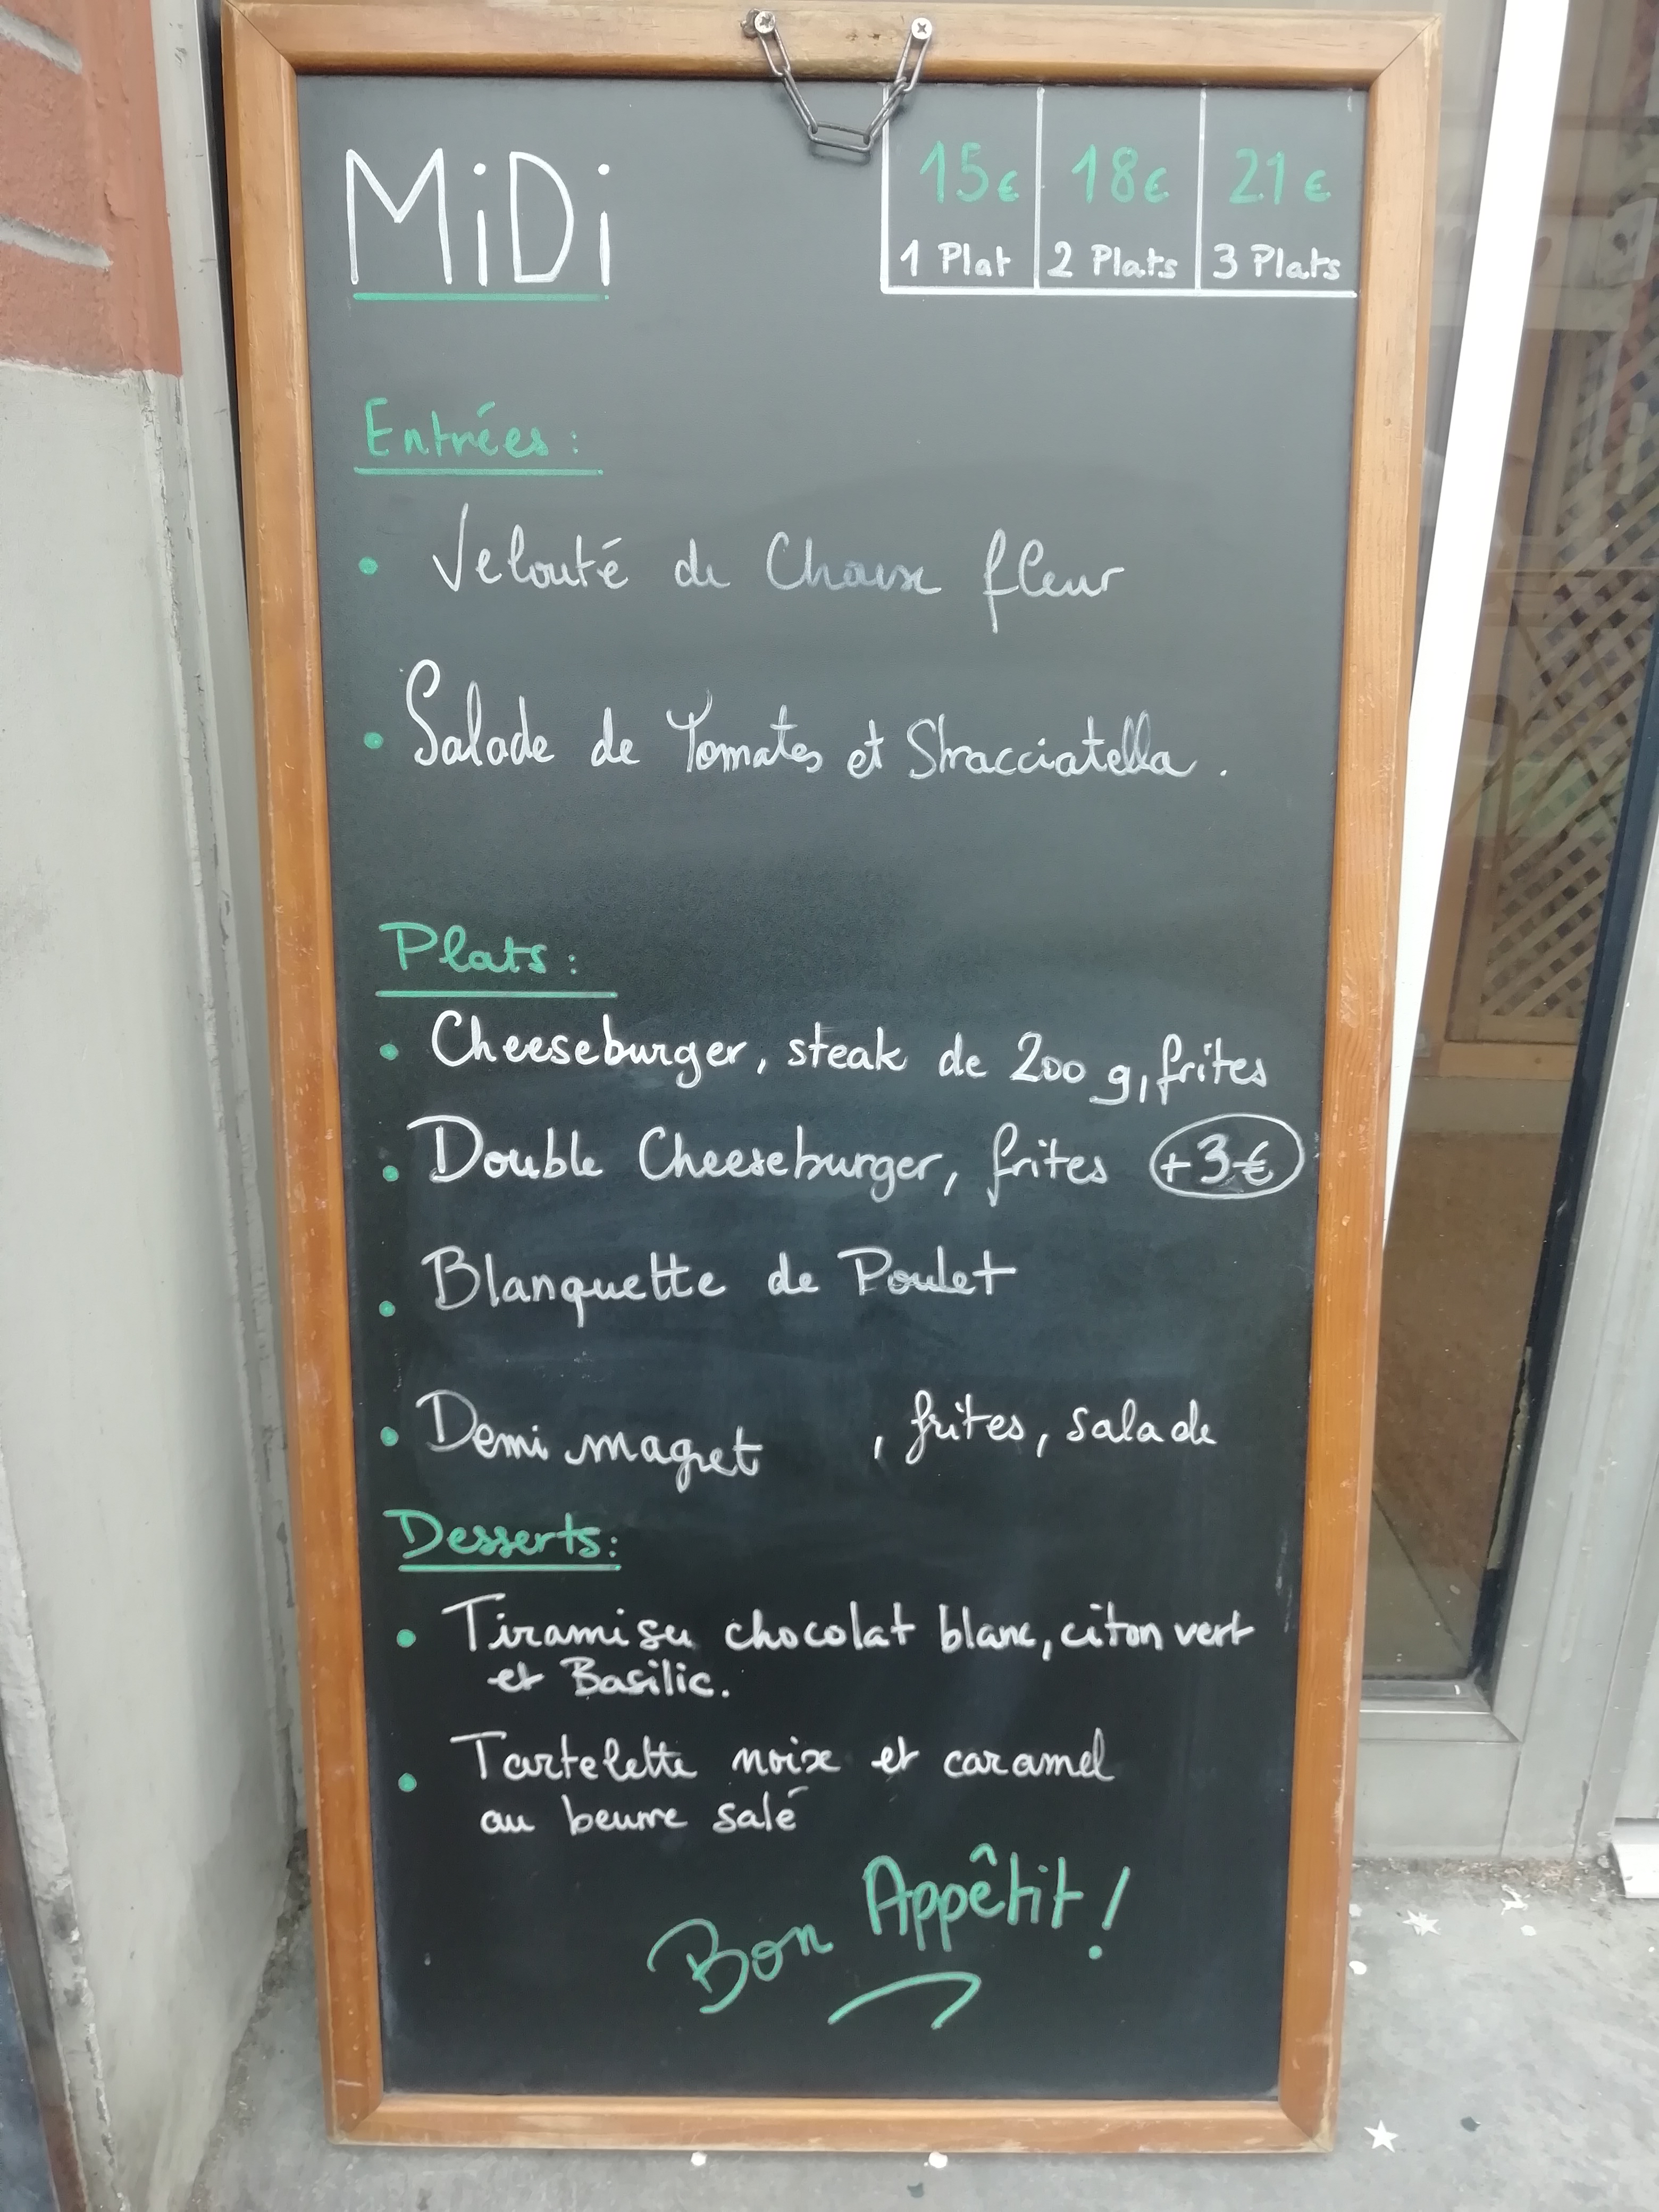 MiDi
15€ 18€ 21€
1 Plat 2 Plats 3 Plats
Entrées :
• Velouté de Choux fleur
• Salade de Tomates et Stracciatella.
Plats :
• Cheeseburger, steak de 200 g, frites
• Double Cheeseburger, frites +3€
• Blanquette de Poulet
• Demi magret , frites, salade
Desserts :
• Tiramisu chocolat blanc, citon vert
et Basilic.
• Tartelette noix et caramel
au beurre salé
Bon Appêtit !